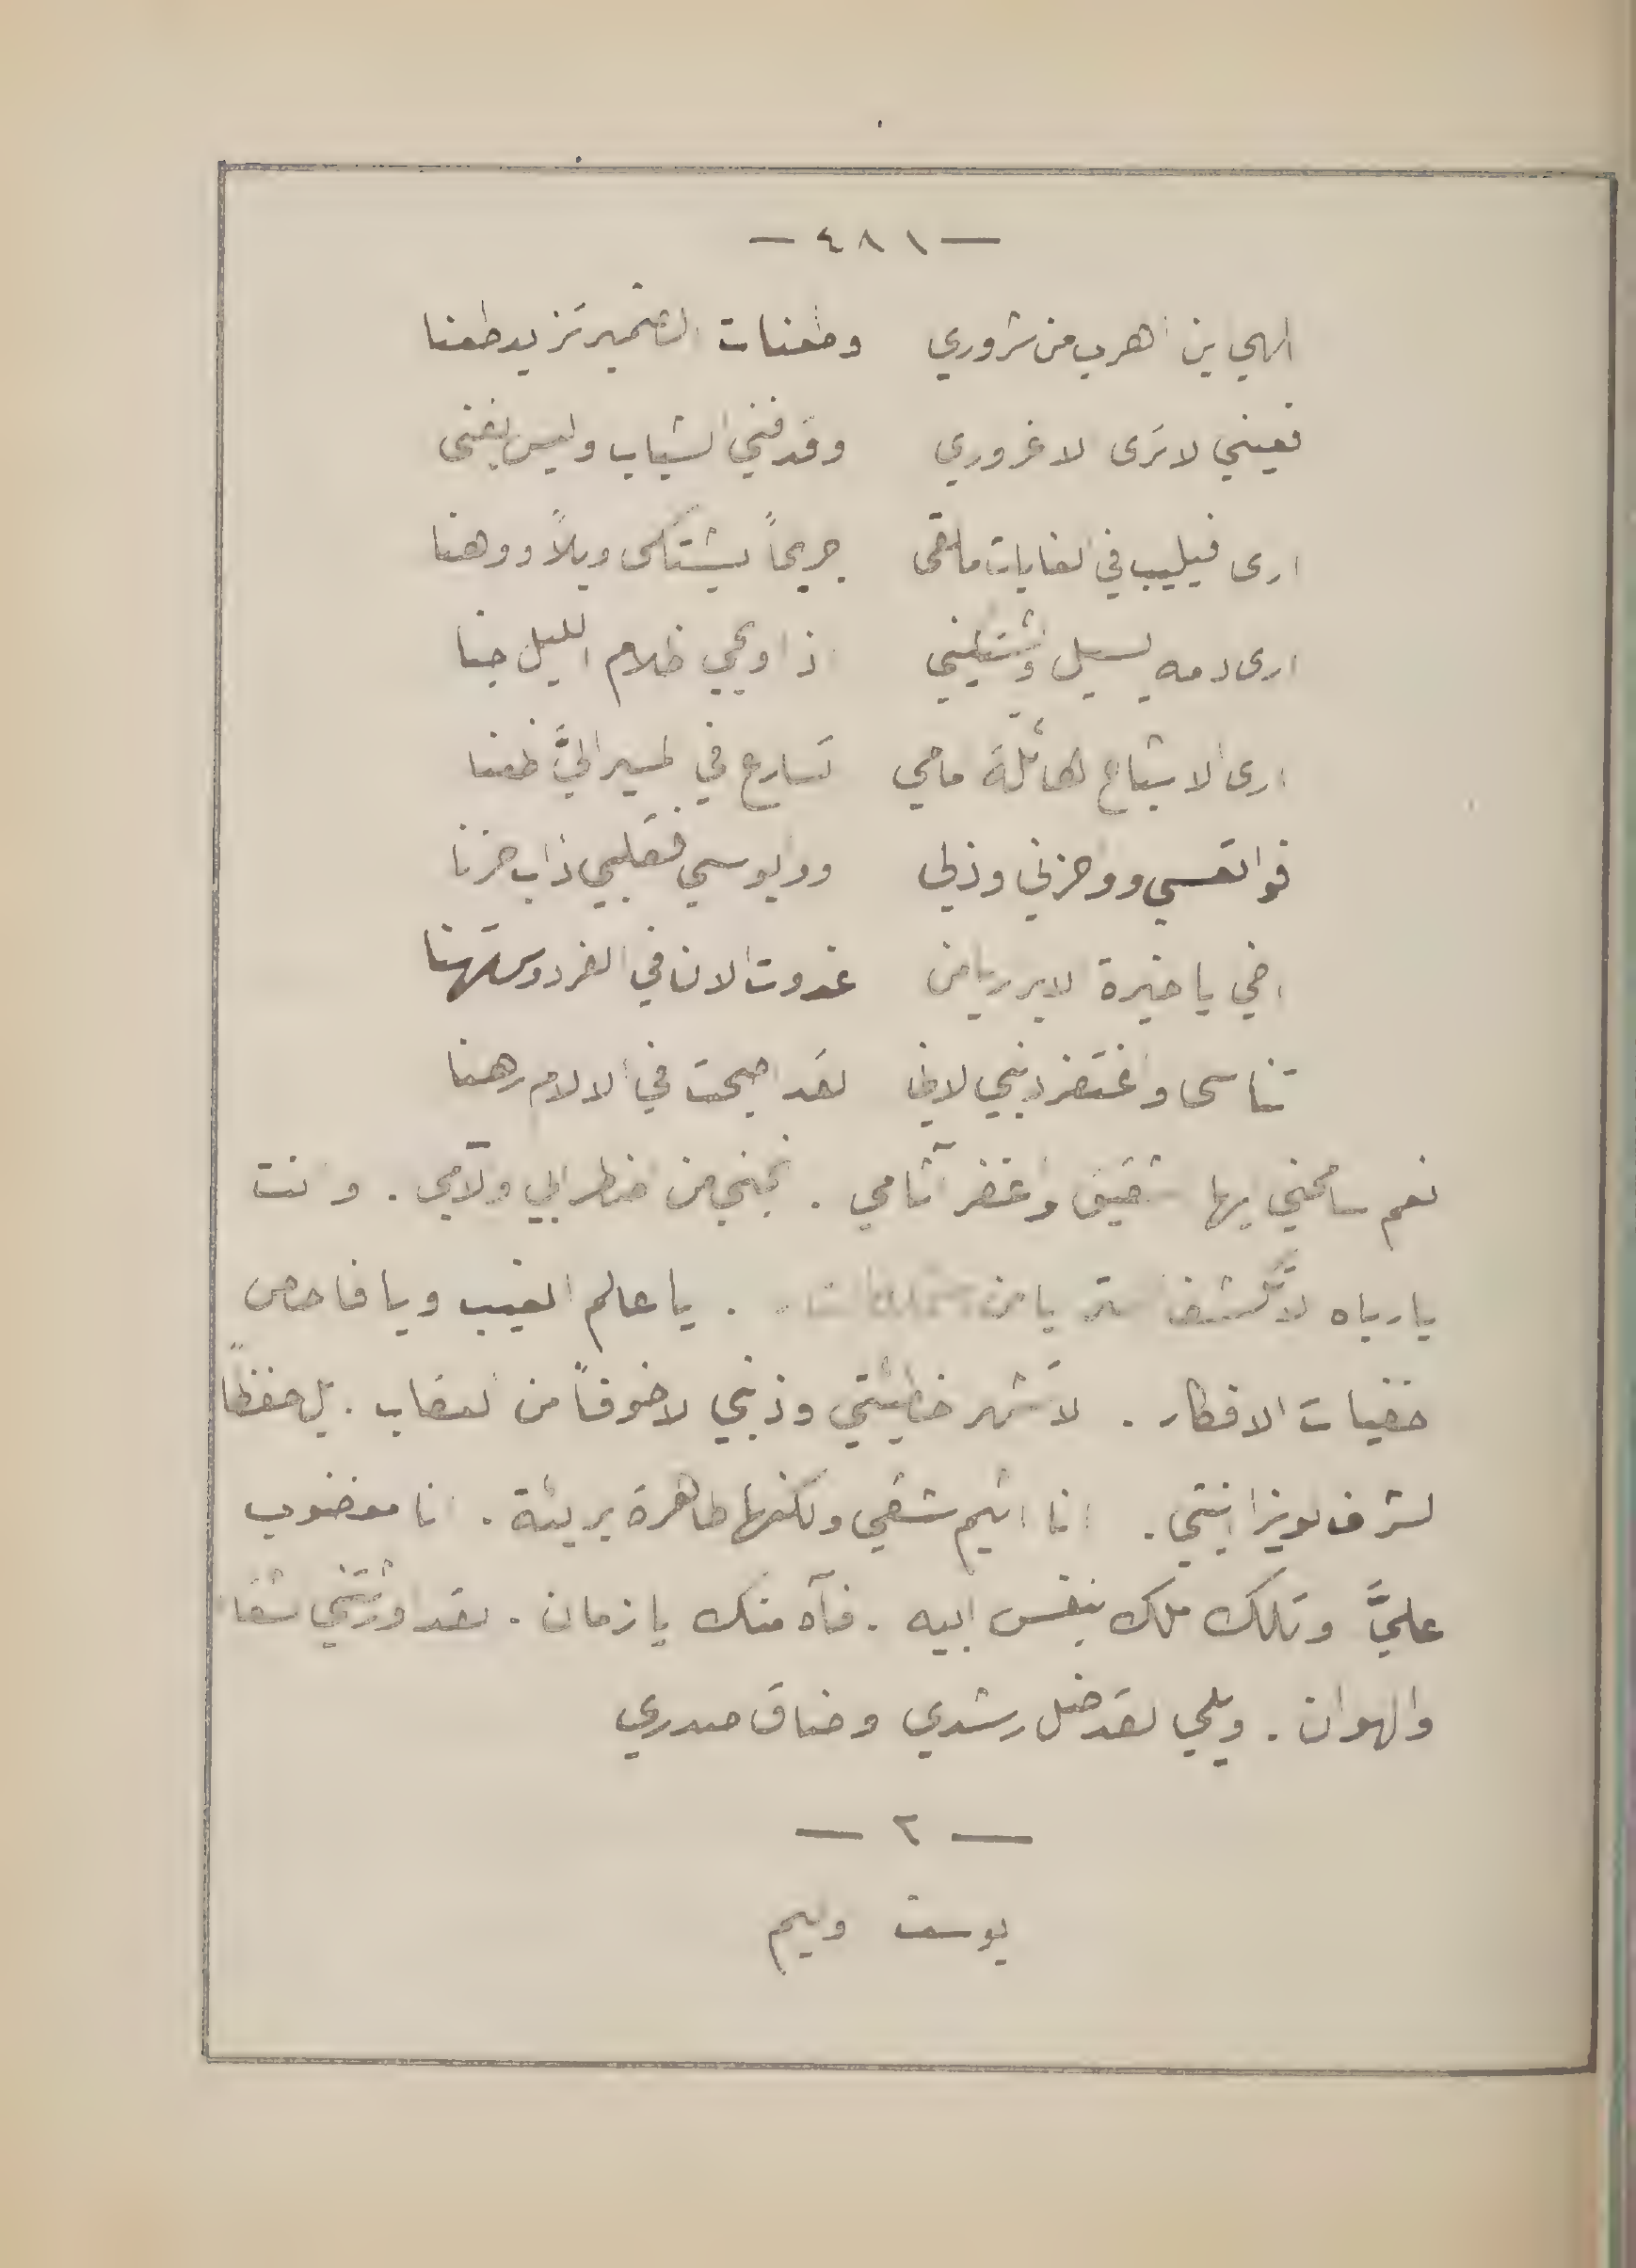 — ٤٨١ —
الهي اين اهرب من شروري وطعنات الضمير تزيد طعنا
فعيني لا ترى الا غروري وقد فني الشباب وليس يفنى
ارى فيليب في الغابات ملقى جريحاً يشتكى ويلاً ووهنا
ارى دمه يسيل اذا ويحي ظلام الليل جنا
ارى الاشباح هائلة امامي تسارع في المسير اليَّ ظعنا
فوا تعسي ووا حزني وذلي ووا بوسي فقلبي ذاب حزنا
اخي يا خيرة الابرار يا من غدوت الان في الفردوس تهنا
تناسى واغتفر ذنبي لاني لقد اصبحت في الالام رهنا
نعم سامحني ايها الشقيق واغتفر آثامي . نجني من اضطرابي وآلامي . وانت
يا رباه لا تكشف يا من . يا عالم الغيب ويا فاحص
خفيات الافكار . لا تشهر خطيئتي وذنبي لا خوفاً من العقاب . بل حفظاً
لشرف لويزا ابنتي . انا اثيم شقي ولكنها طاهرة بريئة . انا مغضوب
عليَّ وتلك ملك بنفس ابيه . فآه منك يا زمان . لقد اورثتني الشقا
والهوان . ويلي لقد ضل رشدي وضاق صدري
— ٢ —
يوست وليم